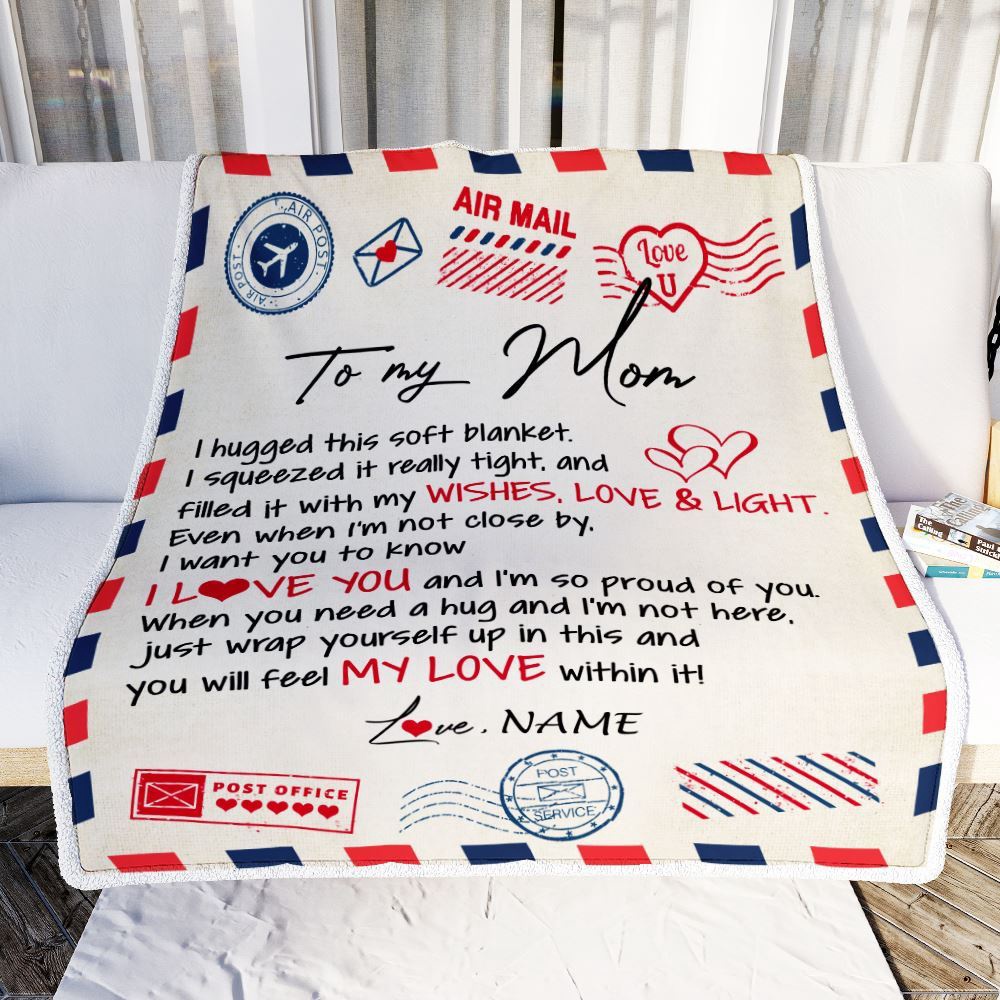 AIR POST
AIR POST
AIR MAIL
Love
U
To my Mom
I hugged this soft blanket.
I squeezed it really tight, and
filled it with my WISHES, LOVE & LIGHT.
Even when I'm not close by,
I want you to know
I L♥VE YOU and I'm so proud of you.
When you need a hug and I'm not here,
just wrap yourself up in this and
you will feel MY LOVE within it!
L♥ve, NAME
POST OFFICE
POST
SERVICE
The
Calling